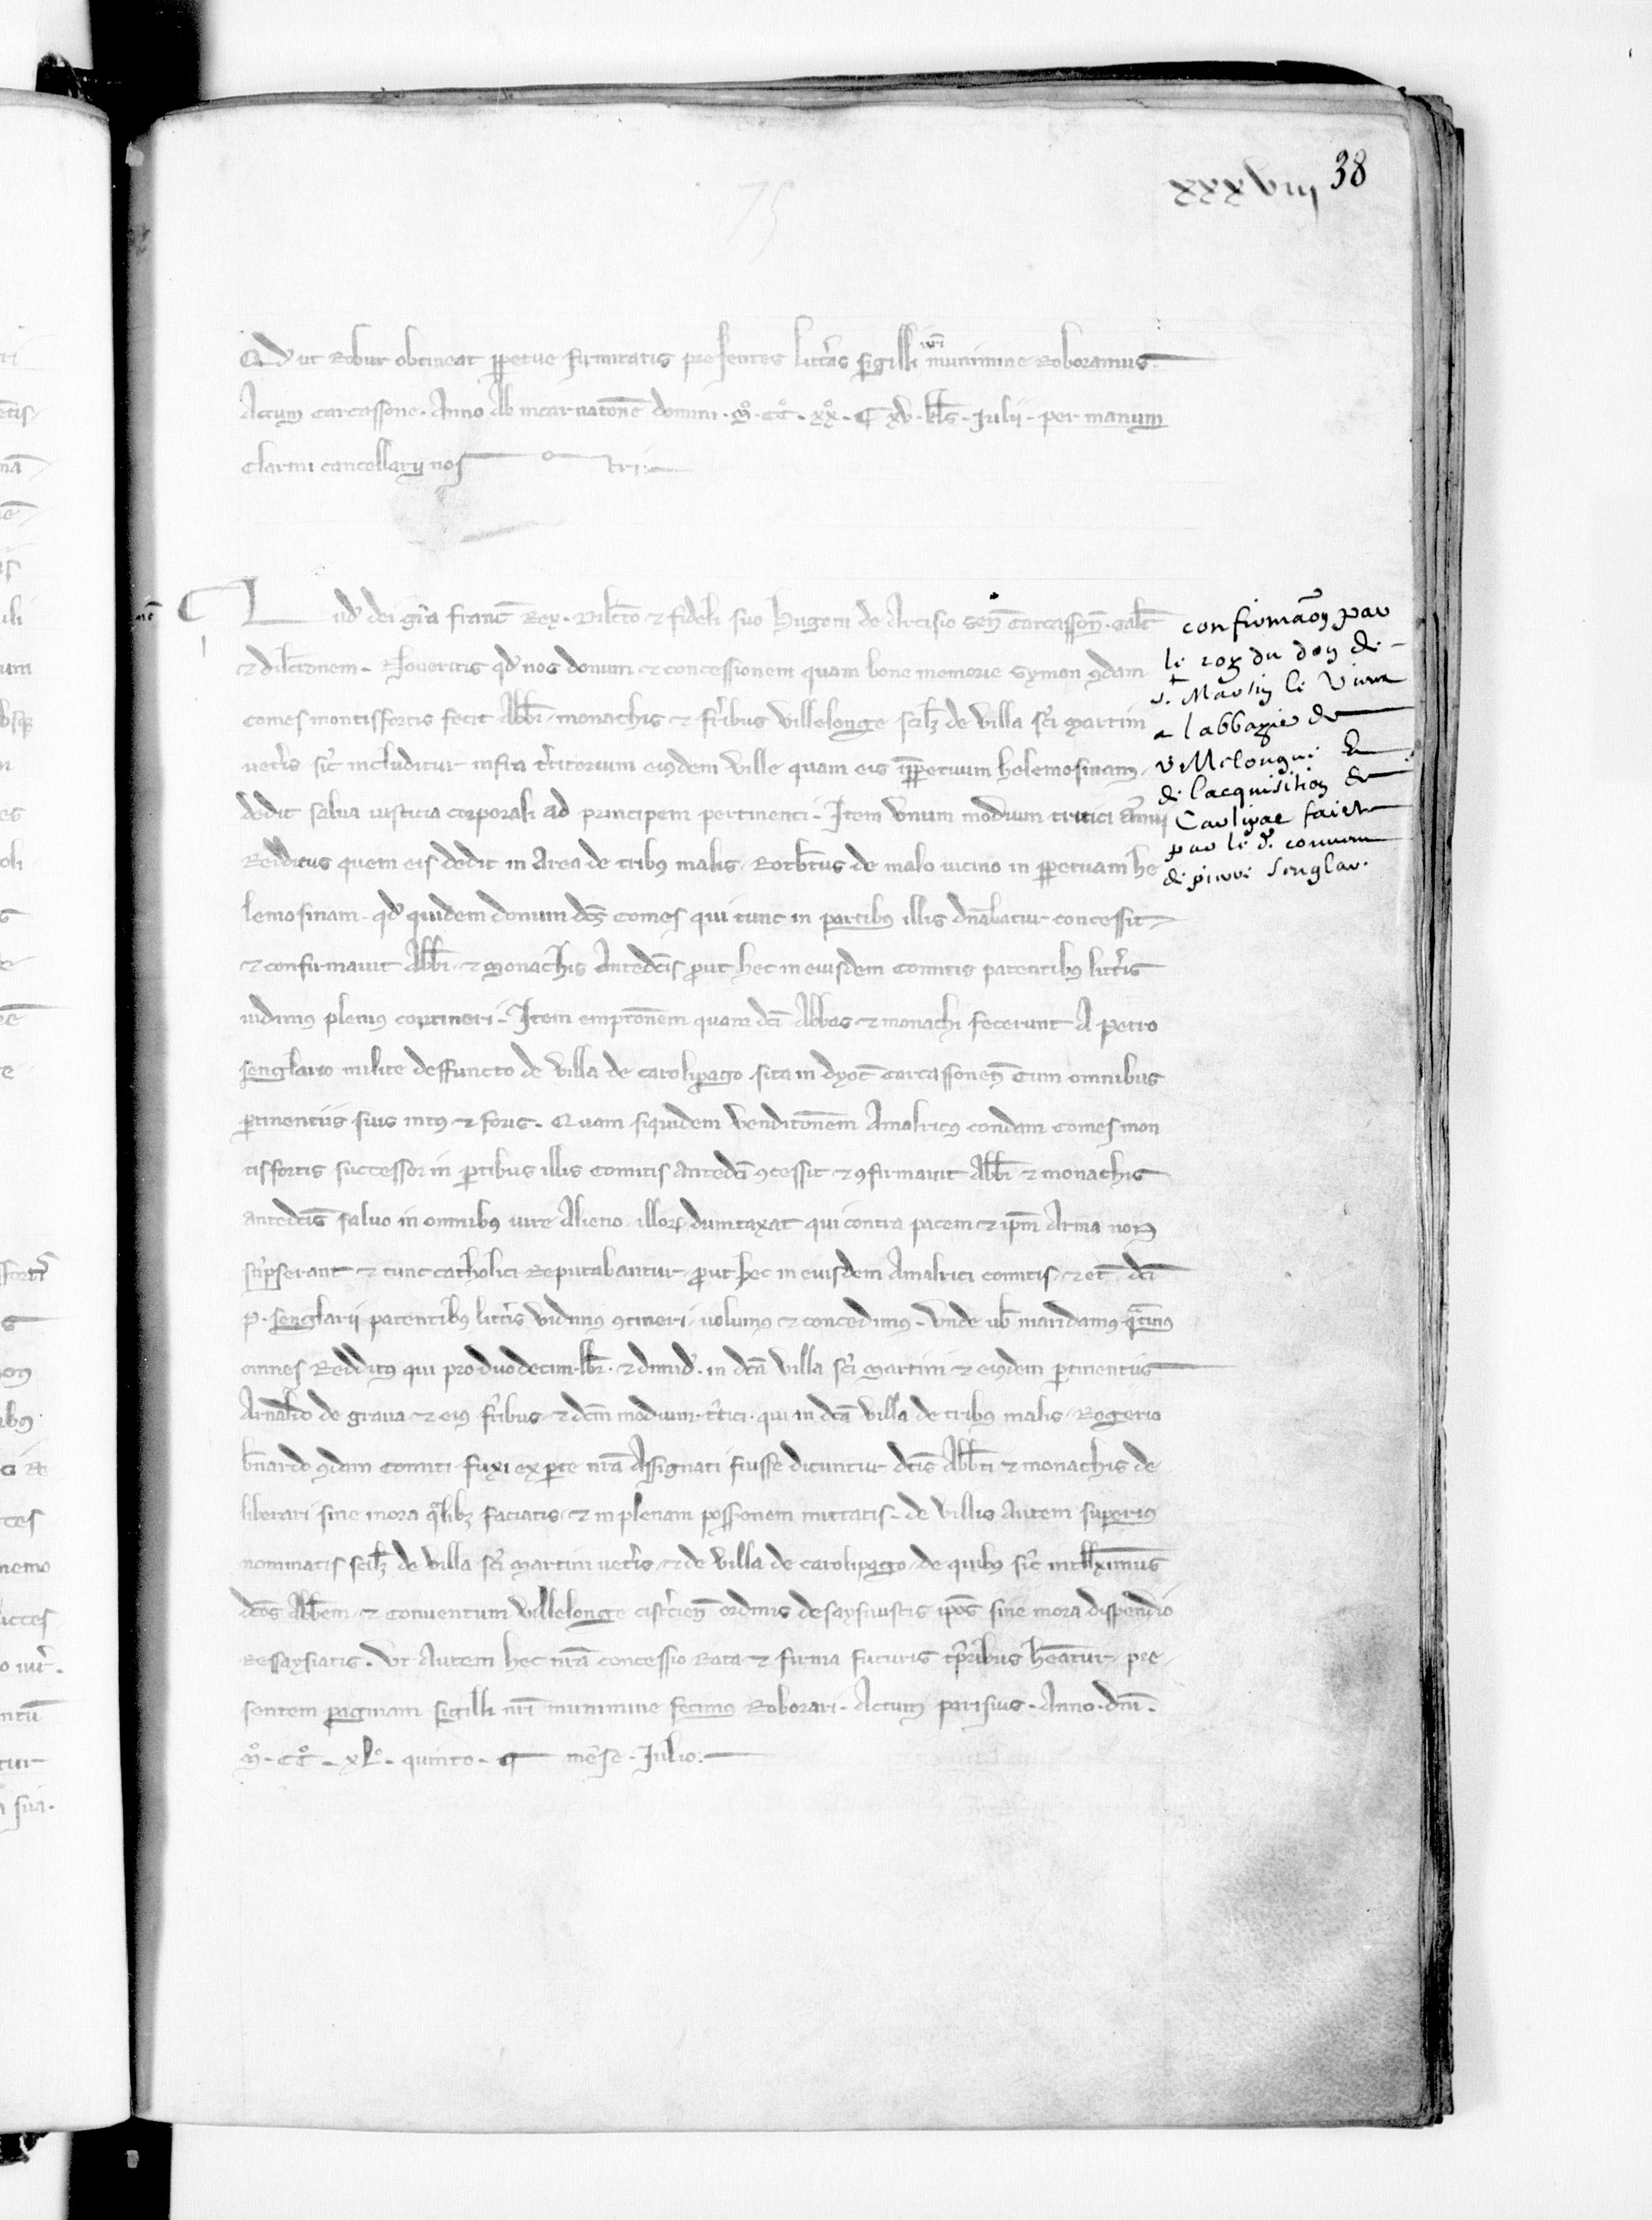 xxxviij 38
75
Qd' ut Robur obtineat ppetue firmitatis presentes litt'as sigilli nri munimine Roboramus
Actum Carcassone. Anno Ab incarnatone domini. mº. ccº. xxº. xv. kls. Julij. per manum
Clarini cancellarij nos tri:
Lud' dei gr̄a franc̄ Rex. Dilcto & fideli suo hugoni de Arcisio sen̄ Carcasson̄. salt̄
& dilctionem. Noveritis qd' nos donum & concessionem quam bone memorie Symon qdam
comes montisfortis fecit Abb̄i monachis & fr̄ibus villelonge scilz de villa sc̄i Martini
vet'is sic̄ includitur infra t'ritorium eiusdem ville quam eis ippetuum helemosinam
dedit salva iusticia corporali ad principem pertinenti. Item unum modium tritici annui
Redditus quem eis dedit in area de tribus malis. Rotb'tus de malo vicino in ppetuam he
lemosinam. qd' quidem donum dc̄s comes qui tunc in partibus illis dn̄abatur concessit
& confirmavit Abb̄i. & monachis Antedc̄is put hec in eiusdem Comitis patentibus litt'is
vidimus plenius contineri. Item emptōnem quam dc̄i Abbas & monachi fecerunt A petro
senglario milite deffuncto de villa de carolipago sita in dyoc̄ Carcassonen̄ Cum omnibus
ptinentiis suis intus & foris. Quam siquidem venditōnem Amalricus condam Comes mon
tisfortis successor in ptibus illis Comitis antedc̄i 9cessit & 9firmavit Abb̄i & monachis
antedc̄is salvo in omnibus iure Alieno illor dumtaxat qui contra pacem & ip̄m Arma non
sūpserant & tunc catholici Reputabantur put hec in eiusdem Amalrici comitis & et̄ dc̄i
P. senglarij patentibus litt'is vidimus 9tineri. volumus & concedimus. Unde vob̄ mandamus qtinus
omnes Redditus qui pro duodecim libr̄. & dimid'. in dc̄a villa sc̄i Martini & eiusdem ptinentiis
Arnaldo de grava & eius fr̄ibus & dc̄m modium t'tici. qui in dc̄a villa de tribus malis. Rogerio
b'nardo qdam Comiti fuxi ex pte nr̄a Assignati fuisse dicuntur dc̄is Abb̄ti & monachis de
liberari sine mora qlibz faciatis & in plenam possonem mittatis. de villis autem superius
nominatis scilz de villa sc̄i Martini vet'is & de villa de carolipago de quibus sic̄ intllximus
dc̄os Abb̄em & conventum villelonge cist'cien̄ ordinis desaysivistis ipos sine mora dispendio
Resaysiatis. Ut Autem hec nr̄a concessio Rata & firma futuris tp̄ribus h̄eatur. pre
sentem paginam sigilli nr̄i munimine fecimus Roborari. Actum parisius. Anno dn̄i.
mº. ccº. xlº. quinto. mēse Julio:
confirmaon par
le roy du don de
st. Martin le Vieux
a labbaye de
villelongue Et
de lacquisition de
Carlipac faicte
par le d. couvent
de pierre Senglar.